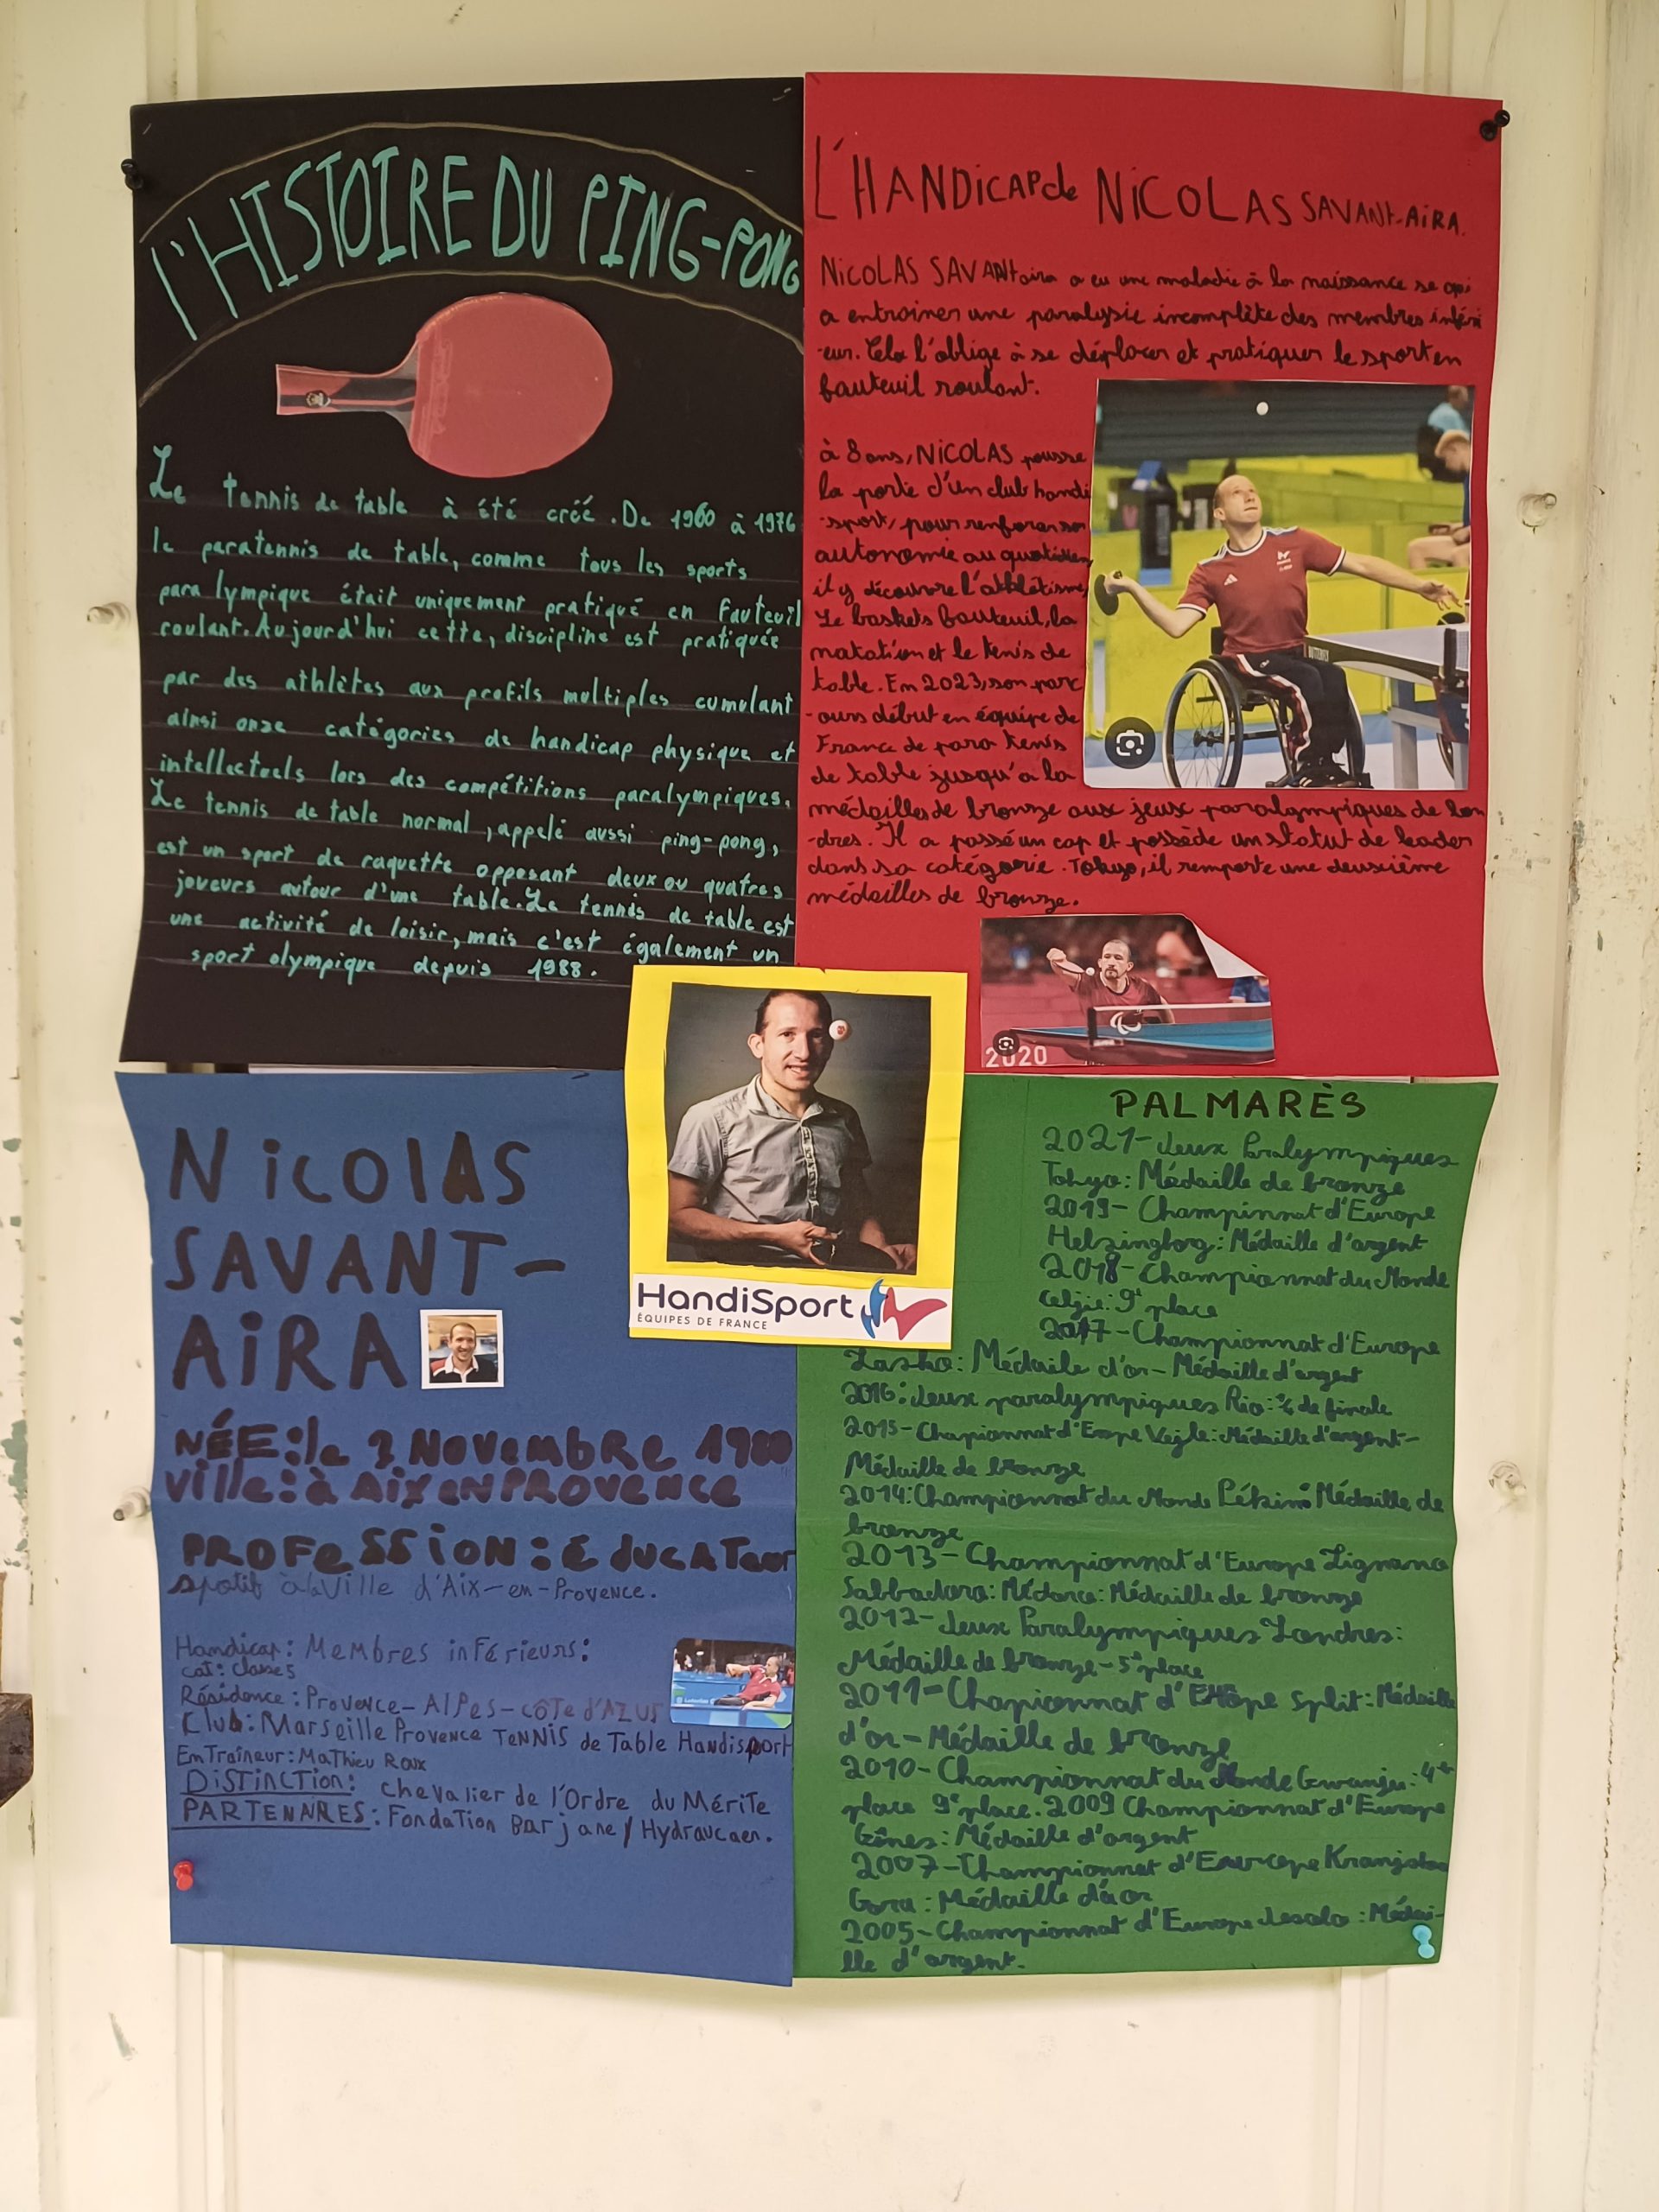 l'HISTOIRE DU PING-PONG
Le tennis de table à été créé. De 1960 à 1976
le paratennis de table, comme tous les sports
para lympique était uniquement pratiqué en Fauteuil
roulant. Aujourd'hui cette, discipline est pratiquée
par des athlètes aux profils multiples cumulant
ainsi onze catégories de handicap physique et
intellectuels lors des compétitions paralympiques.
Le tennis de table normal, appelé aussi ping-pong,
est un sport de raquette opposant deux ou quatres
joueurs autour d'une table. Le tennis de table est
une activité de loisir, mais c'est également un
sport olympique depuis 1988.
L'HANDICAP de NICOLAS SAVANT-AIRA.
NICOLAS SAVANT aira a eu une maladie à la naissance se qui
a entrainer une paralysie incomplète des membres inféri
-eur. Cela l'oblige à se déplacer et pratiquer le sport en
fauteuil roulant.
à 8 ans, NICOLAS pousse
la porte d'un club handi
-sport, pour renforcer son
autonomie au quotidien,
il y découvre l'athlétisme,
Le baskets fauteuil, la
natation et le tenis de
table. En 2023, son parc
-ours début en équipe de
France de para tenis
de table jusqu'a la
médailles de bronze aux jeux paralympiques de lon
-dres. Il a passé un cap et possède un statut de leader
dans sa catégorie. Tokyo, il remporte une deuxième
médailles de bronze.
2020
HandiSport
ÉQUIPES DE FRANCE
NICOLAS
SAVANT-
AIRA
NÉE: le 2 Novembre 1980
Ville: à Aix en PROVENCE
PROFESSION: EDUCATeur
spotif à la Ville d'Aix-en-Provence.
Handicap: Membres inférieurs:
cat: classe 5
Résidence: Provence-Alpes-côTe d'AZUR
Club: Marseille Provence TENNIS de Table Handisport
EmTraîneur: Mathieu Roux
DISTINCTION: Chevalier de l'Ordre du Mérite
PARTENAIRES: Fondation Barjane / Hydraucaen.
PALMARÈS
2021- Jeux Paralympiques
Tokyo: Médaille de bronze
2019- Champinnat d'Europe
Helsingborg: Médaille d'argent
2018- Championnat du Monde
Celjie: 9e place
2017- Championnat d'Europe
Lasko: Médaile d'or- Médaille d'argent
2016: Jeux paralympiques Rio: ¼ de finale
2015- Chapionnat d'Europe Vejle: Médaille d'argent-
Médaille de bronze
2014: Championnat du Monde Pékin: Médaille de
bronze
2013- Championnat d'Europe Lignano
Sabbadora: Médorce: Médaille de bronze
2012- Jeux Paralympiques Londres:
Médaille de bronze- 5e place
2011- Chapionnat d'Europe Split: Médaille
d'or- Médaille de bronze
2010- Championnat du Monde Gwanju: 4e
place 9e place. 2009 Championnat d'Europe
Gênes: Médaille d'argent
2007- Championnat d'Europe Kranjska
Gora: Médaille d'or
2005- Championnat d'Europe Jesolo: Médai-
lle d'argent.